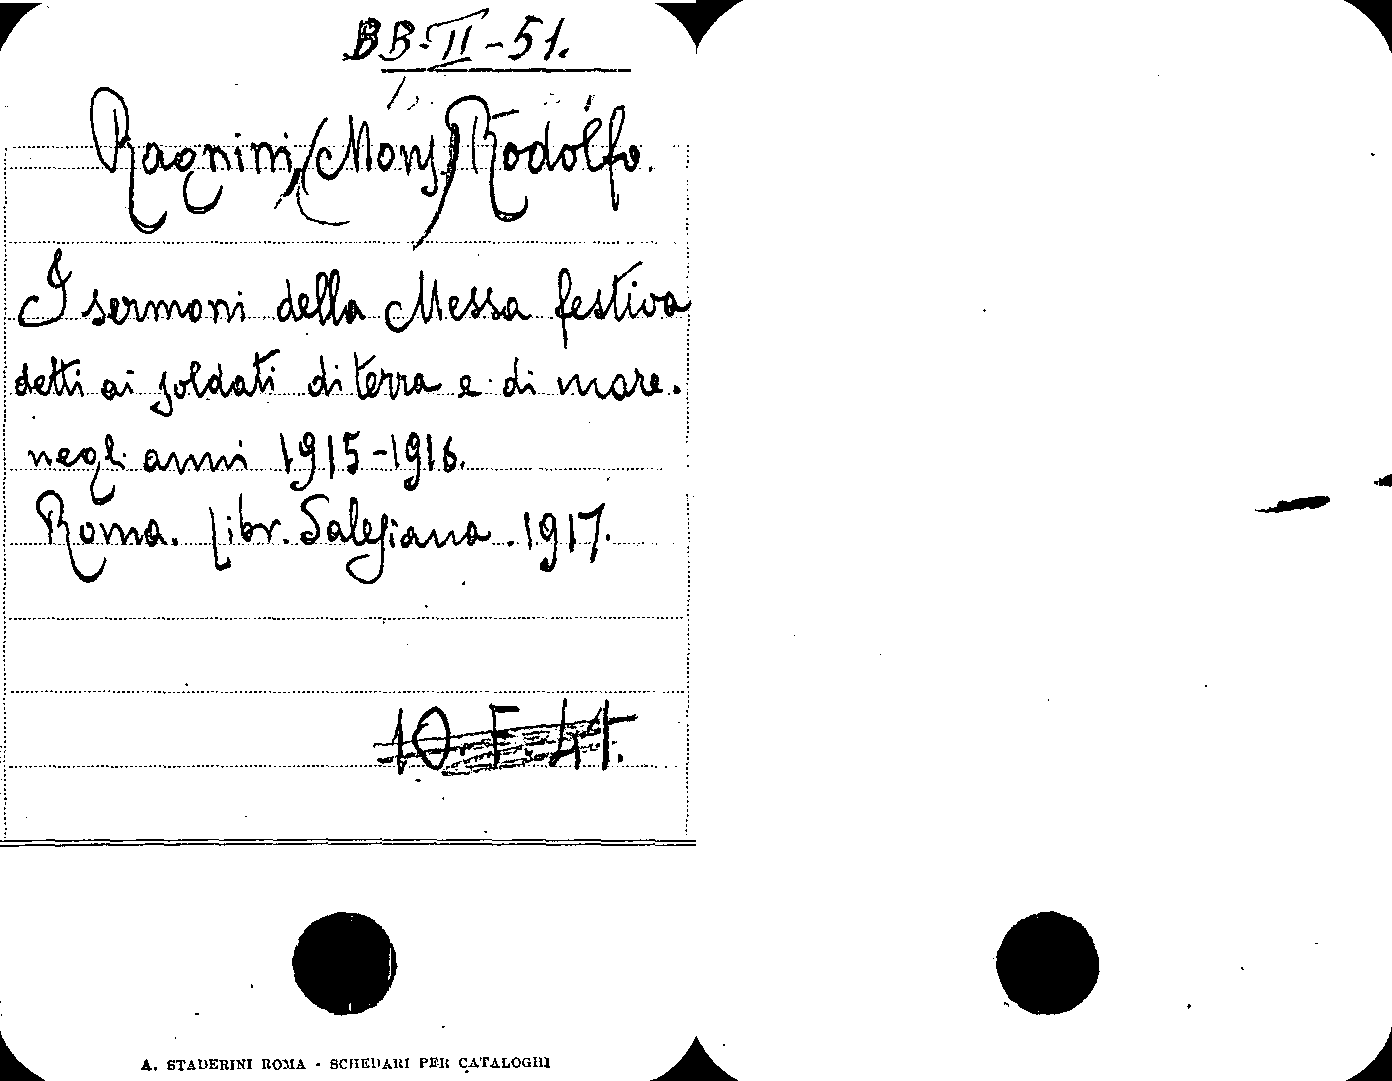 BB-II-51.
Ragnini, (Mons) Rodolfo.
I sermoni della Messa festiva
detti ai soldati di terra e di mare.
negli anni 1915-1916.
Roma. Libr. Salesiana. 1917.
10. F. 41.
A. STADERINI ROMA - SCHEDARI PER CATALOGHI